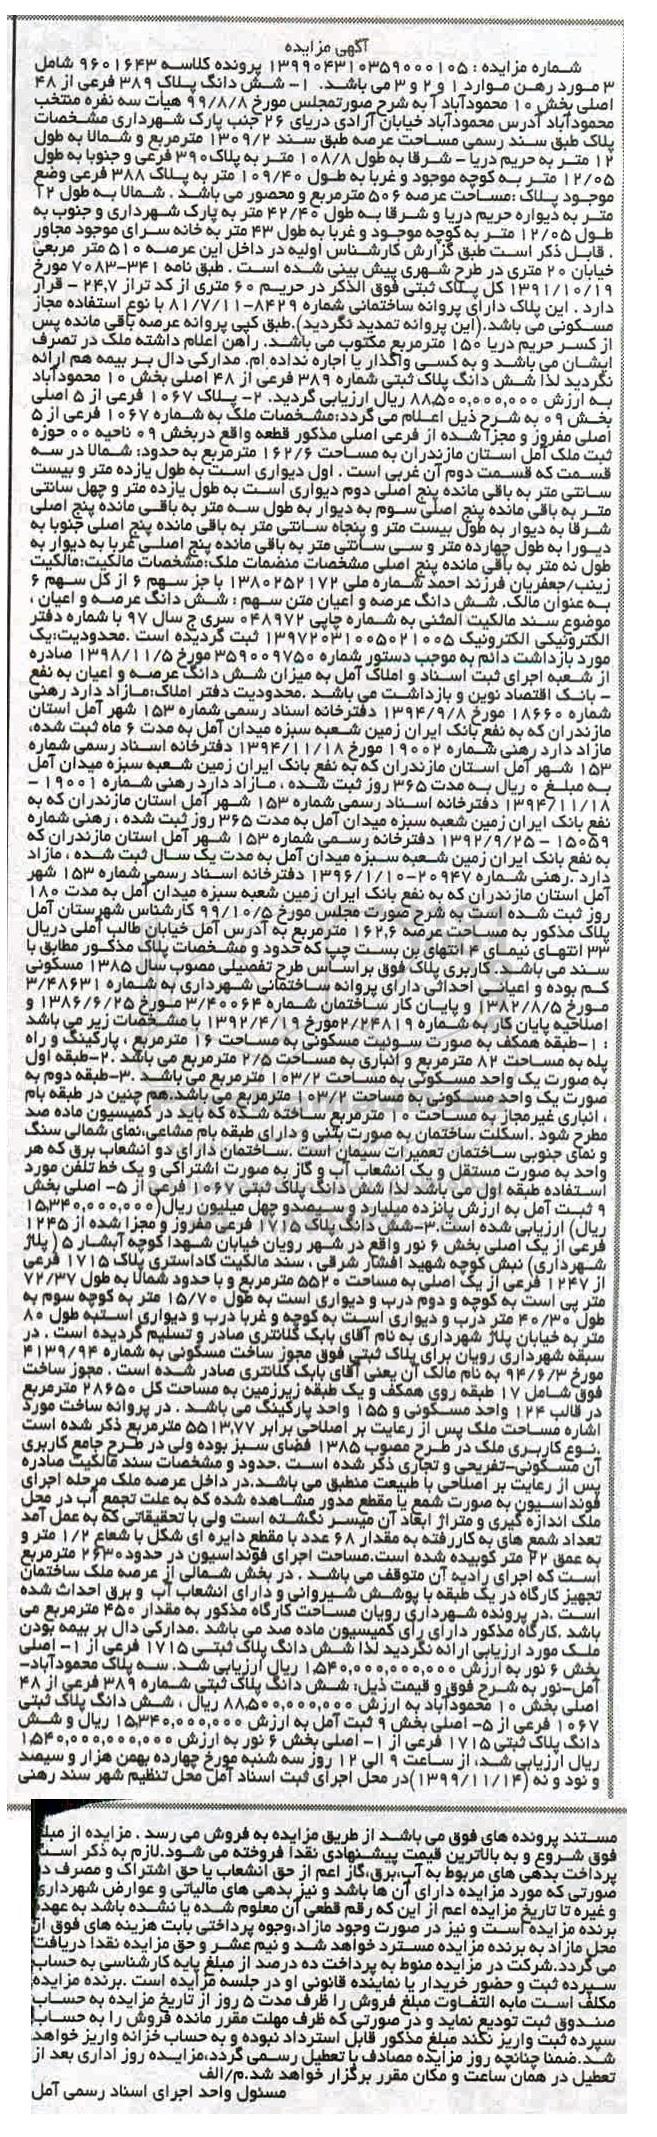 آگهی مزایده
شماره مزایده : ۱۳۹۹۰۴۳۱۰۳۵۹۰۰۰۱۰۵ پرونده کلاسه ۹۶۰۱۶۴۳ شامل
۳ مورد رهن موارد ۱ و ۲ و ۳ می باشد. ۱- شش دانگ پلاک ۳۸۹ فرعی از ۴۸
اصلی بخش ۱۰ محمودآباد آ به شرح صورتمجلس مورخ ۹۹/۸/۸ هیأت سه نفره منتخب
محمودآباد آدرس محمودآباد خیابان آزادی دریای ۲۶ جنب پارک شهرداری مشخصات
پلاک طبق سند رسمی مساحت عرصه طبق سند ۱۳۰۹/۲ مترمربع و شمالا به طول
۱۲ متر به حریم دریا - شرقا به طول ۱۰۸/۸ متر به پلاک ۳۹۰ فرعی و جنوبا به طول
۱۲/۰۵ متر به کوچه موجود و غربا به طول ۱۰۹/۴۰ متر به پلاک ۳۸۸ فرعی وضع
موجود پلاک :مساحت عرصه ۵۰۶ مترمربع و محصور می باشد . شمالا به طول ۱۲
متر به دیواره حریم دریا و شرقا به طول ۴۲/۴۰ متر به پارک شهرداری و جنوب به
طول ۱۲/۰۵ متر به کوچه موجود و غربا به طول ۴۳ متر به خانه سرای موجود مجاور
. قابل ذکر است طبق گزارش کارشناس اولیه در داخل این عرصه ۵۱۰ متر مربعی
خیابان ۲۰ متری در طرح شهری پیش بینی شده است . طبق نامه ۳۴۱-۷۰۸۳ مورخ
۱۳۹۱/۱۰/۱۹ کل پلاک ثبتی فوق الذکر در حریم ۶۰ متری از کد تراز ۲۴,۷ - قرار
دارد . این پلاک دارای پروانه ساختمانی شماره ۸۴۲۹-۸۱/۷/۱۱ با نوع استفاده مجاز
مسکونی می باشد.(این پروانه تمدید نگردید).طبق کپی پروانه عرصه باقی مانده پس
از کسر حریم دریا ۱۵۰ مترمربع مکتوب می باشد. راهن اعلام داشته ملک در تصرف
ایشان می باشد و به کسی واگذار یا اجاره نداده ام. مدارکی دال بر بیمه هم ارائه
نگردید لذا شش دانگ پلاک ثبتی شماره ۳۸۹ فرعی از ۴۸ اصلی بخش ۱۰ محمودآباد
به ارزش ۸۸,۵۰۰,۰۰۰,۰۰۰ ریال ارزیابی گردید. ۲- پلاک ۱۰۶۷ فرعی از ۵ اصلی
بخش ۰۹ به شرح ذیل اعلام می گردد:مشخصات ملک به شماره ۱۰۶۷ فرعی از ۵
اصلی مفروز و مجزا شده از فرعی اصلی مذکور قطعه واقع دربخش ۰۹ ناحیه ۰۰ حوزه
ثبت ملک آمل استان مازندران به مساحت ۱۶۲/۶ مترمربع به حدود: شمالا در سه
قسمت که قسمت دوم آن غربی است . اول دیواری است به طول یازده متر و بیست
سانتی متر به باقی مانده پنج اصلی دوم دیواری است به طول یازده متر و چهل سانتی
متر به باقی مانده پنج اصلی سوم به دیوار به طول سه متر به باقی مانده پنج اصلی
شرقا به دیوار به طول بیست متر و پنجاه سانتی متر به باقی مانده پنج اصلی جنوبا به
دیورا به طول چهارده متر و سی سانتی متر به باقی مانده پنج اصلی غربا به دیوار به
طول نه متر به باقی مانده پنج اصلی مشخصات منضمات ملک:مشخصات مالکیت:مالکیت
زینب/جعفریان فرزند احمد شماره ملی ۱۳۸۰۲۵۲۱۷۲ با جز سهم ۶ از کل سهم ۶
به عنوان مالک. شش دانگ عرصه و اعیان متن سهم : شش دانگ عرصه و اعیان ،
موضوع سند مالکیت المثنی به شماره چاپی ۰۴۸۹۷۲ سری ج سال ۹۷ با شماره دفتر
الکترونیکی الکترونیک ۱۳۹۷۲۰۳۱۰۰۵۰۲۱۰۰۵ ثبت گردیده است .محدودیت:یک
مورد بازداشت دائم به موجب دستور شماره ۳۵۹۰۰۹۷۵۰ مورخ ۱۳۹۸/۱۱/۵ صادره
از شعبه اجرای ثبت اسناد و املاک آمل به میزان شش دانگ عرصه و اعیان به نفع
- بانک اقتصاد نوین و بازداشت می باشد .محدودیت دفتر املاک:مازاد دارد رهنی
شماره ۱۸۶۶۰ مورخ ۱۳۹۴/۹/۸ دفترخانه اسناد رسمی شماره ۱۵۳ شهر آمل استان
مازندران که به نفع بانک ایران زمین شعبه سبزه میدان آمل به مدت ۶ ماه ثبت شده،
مازاد دارد رهنی شماره ۱۹۰۰۲ مورخ ۱۳۹۴/۱۱/۱۸ دفترخانه اسناد رسمی شماره
۱۵۳ شهر آمل استان مازندران که به نفع بانک ایران زمین شعبه سبزه میدان آمل
به مبلغ ۰ ریال به مدت ۳۶۵ روز ثبت شده ، مازاد دارد رهنی شماره ۱۹۰۰۱ -
۱۳۹۴/۱۱/۱۸ دفترخانه اسناد رسمی شماره ۱۵۳ شهر آمل استان مازندران که به
نفع بانک ایران زمین شعبه سبزه میدان آمل به مدت ۳۶۵ روز ثبت شده ، رهنی شماره
۱۵۰۵۹ - ۱۳۹۲/۹/۲۵ دفترخانه رسمی شماره ۱۵۳ شهر آمل استان مازندران که
به نفع بانک ایران زمین شعبه سبزه میدان آمل به مدت یک سال ثبت شده ، مازاد
دارد .رهنی شماره ۲۰۹۴۷-۱۳۹۶/۱/۱۰ دفترخانه اسناد رسمی شماره ۱۵۳ شهر
آمل استان مازندران که به نفع بانک ایران زمین شعبه سبزه میدان آمل به مدت ۱۸۰
روز ثبت شده است به شرح صورت مجلس مورخ ۹۹/۱۰/۵ کارشناس شهرستان آمل
پلاک مذکور به مساحت عرصه ۱۶۲,۶ مترمربع به آدرس آمل خیابان طالب آملی دریال
۳۳ انتهای نیمای ۴ انتهای بن بست چپ که حدود و مشخصات پلاک مذکور مطابق با
سند می باشد. کاربری پلاک فوق براساس طرح تفصیلی مصوب سال ۱۳۸۵ مسکونی
کم بوده و اعیانی احداثی دارای پروانه ساختمانی شهرداری به شماره ۳/۴۸۶۳۱
مورخ ۱۳۸۲/۸/۵ و پایان کار ساختمان شماره ۳/۴۰۰۶۴ مورخ ۱۳۸۶/۶/۲۵ و
اصلاحیه پایان کار به شماره ۲/۲۴۸۱۹مورخ ۱۳۹۲/۴/۱۹ با مشخصات زیر می باشد
: ۱-طبقه همکف به صورت سوئیت مسکونی به مساحت ۱۶ مترمربع ، پارکینگ و راه
پله به مساحت ۸۲ مترمربع و انباری به مساحت ۲/۵ مترمربع می باشد .۲-طبقه اول
به صورت یک واحد مسکونی به مساحت ۱۰۳/۲ مترمربع می باشد .۳-طبقه دوم به
صورت یک واحد مسکونی به مساحت ۱۰۳/۲ مترمربع می باشد.هم چنین در طبقه بام
، انباری غیرمجاز به مساحت ۱۰ مترمربع ساخته شده که باید در کمیسیون ماده صد
مطرح شود .اسکلت ساختمان به صورت بتنی و دارای طبقه بام مشاعی،نمای شمالی سنگ
و نمای جنوبی ساختمان تعمیرات سیمان است .ساختمان دارای دو انشعاب برق که هر
واحد به صورت مستقل و یک انشعاب آب و گاز به صورت اشتراکی و یک خط تلفن مورد
استفاده طبقه اول می باشد لذا شش دانگ پلاک ثبتی ۱۰۶۷ فرعی از ۵- اصلی بخش
۹ ثبت آمل به ارزش پانزده میلیارد و سیصدو چهل میلیون ریال(۱۵,۳۴۰,۰۰۰,۰۰۰
ریال) ارزیابی شده است.۳-شش دانگ پلاک ۱۷۱۵ فرعی مفروز و مجزا شده از ۱۲۴۵
فرعی از یک اصلی بخش ۶ نور واقع در شهر رویان خیابان شهدا کوچه آبشار ۵ ( پلاژ
شهرداری) نبش کوچه شهید افشار شرقی ، سند مالکیت کاداستری پلاک ۱۷۱۵ فرعی
از ۱۲۴۷ فرعی از یک اصلی به مساحت ۵۵۲۰ مترمربع و با حدود شمالا به طول ۷۲/۳۷
متر پی است به کوچه و دوم درب و دیواری است به طول ۱۵/۷۰ متر به کوچه سوم به
طول ۴۰/۳۰ متر درب و دیواری است به کوچه و غربا درب و دیواری استبه طول ۸۰
متر به خیابان پلاژ شهرداری به نام آقای بابک کلانتری صادر و تسلیم گردیده است . در
سبقه شهرداری رویان برای پلاک ثبتی فوق مجوز ساخت مسکونی به شماره ۴۱۳۹/۹۴
مورخ ۹۴/۶/۳ به نام مالک آن یعنی آقای بابک کلانتری صادر شده است . مجوز ساخت
فوق شامل ۱۷ طبقه روی همکف و یک طبقه زیرزمین به مساحت کل ۲۸۶۵۰ مترمربع
در قالب ۱۲۴ واحد مسکونی و ۱۵۵ واحد پارکینگ می باشد . در پروانه ساخت مورد
اشاره مساحت ملک پس از رعایت بر اصلاحی برابر ۵۵۱۳,۷۷ مترمربع ذکر شده است
.نوع کاربری ملک در طرح مصوب ۱۳۸۵ فضای سبز بوده ولی در طرح جامع کاربری
آن مسکونی-تفریحی و تجاری ذکر شده است .حدود و مشخصات سند مالکیت صادره
پس از رعایت بر اصلاحی با طبیعت منطبق می باشد.در داخل عرصه ملک مرحله اجرای
فونداسیون به صورت شمع با مقطع مدور مشاهده شده که به علت تجمع آب در محل
ملک اندازه گیری و متراژ ابعاد آن میسر نگشته است ولی با تحقیقاتی که به عمل آمد
تعداد شمع های به کاررفته به مقدار ۶۸ عدد با مقطع دایره ای شکل با شعاع ۱/۲ متر و
به عمق ۲۲ متر کوبیده شده است.مساحت اجرای فونداسیون در حدود۲۶۳۰ مترمربع
است که اجرای رادیه آن متوقف می باشد . در بخش شمالی از عرصه ملک ساختمان
تجهیز کارگاه در یک طبقه با پوشش شیروانی و دارای انشعاب آب و برق احداث شده
است .در پرونده شهرداری رویان مساحت کارگاه مذکور به مقدار ۴۵۰ مترمربع می
باشد .کارگاه مذکور دارای رأی کمیسیون ماده صد می باشد .مدارکی دال بر بیمه بودن
ملک مورد ارزیابی ارائه نگردید لذا شش دانگ پلاک ثبتی ۱۷۱۵ فرعی از ۱- اصلی
بخش ۶ نور به ارزش ۱,۵۴۰,۰۰۰,۰۰۰,۰۰۰ ریال ارزیابی شد. سه پلاک محمودآباد-
آمل-نور به شرح فوق و قیمت ذیل: شش دانگ پلاک ثبتی شماره ۳۸۹ فرعی از ۴۸
اصلی بخش ۱۰ محمودآباد به ارزش ۸۸,۵۰۰,۰۰۰,۰۰۰ ریال ، شش دانگ پلاک ثبتی
۱۰۶۷ فرعی از ۵- اصلی بخش ۹ ثبت آمل به ارزش ۱۵,۳۴۰,۰۰۰,۰۰۰ ریال و شش
دانگ پلاک ثبتی ۱۷۱۵ فرعی از ۱- اصلی بخش ۶ نور به ارزش ۱,۵۴۰,۰۰۰,۰۰۰,۰۰۰
ریال ارزیابی شد، از ساعت ۹ الی ۱۲ روز سه شنبه مورخ چهارده بهمن هزار و سیصد
و نود و نه (۱۳۹۹/۱۱/۱۴)در محل اجرای ثبت اسناد آمل محل تنظیم شهر سند رهنی
مستند پرونده های فوق می باشد از طریق مزایده به فروش می رسد . مزایده از مبلغ
فوق شروع و به بالاترین قیمت پیشنهادی نقدا فروخته می شود.لازم به ذکر است
پرداخت بدهی های مربوط به آب،برق،گاز اعم از حق انشعاب یا حق اشتراک و مصرف در
صورتی که مورد مزایده دارای آن ها باشد و نیز بدهی های مالیاتی و عوارض شهرداری
و غیره تا تاریخ مزایده اعم از این که رقم قطعی آن معلوم شده یا نشده باشد به عهده
برنده مزایده است و نیز در صورت وجود مازاد،وجوه پرداختی بابت هزینه های فوق از
محل مازاد به برنده مزایده مسترد خواهد شد و نیم عشر و حق مزایده نقدا دریافت
می گردد.شرکت در مزایده منوط به پرداخت ده درصد از مبلغ پایه کارشناسی به حساب
سپرده ثبت و حضور خریدار یا نماینده قانونی او در جلسه مزایده است .برنده مزایده
مکلف است مابه التفاوت مبلغ فروش را ظرف مدت ۵ روز از تاریخ مزایده به حساب
صندوق ثبت تودیع نماید و در صورتی که ظرف مهلت مقرر مانده فروش را به حساب
سپرده ثبت واریز نکند مبلغ مذکور قابل استرداد نبوده و به حساب خزانه واریز خواهد
شد.ضمنا چنانچه روز مزایده مصادف با تعطیل رسمی گردد،مزایده روز اداری بعد از
تعطیل در همان ساعت و مکان مقرر برگزار خواهد شد.م/الف
مسئول واحد اجرای اسناد رسمی آمل